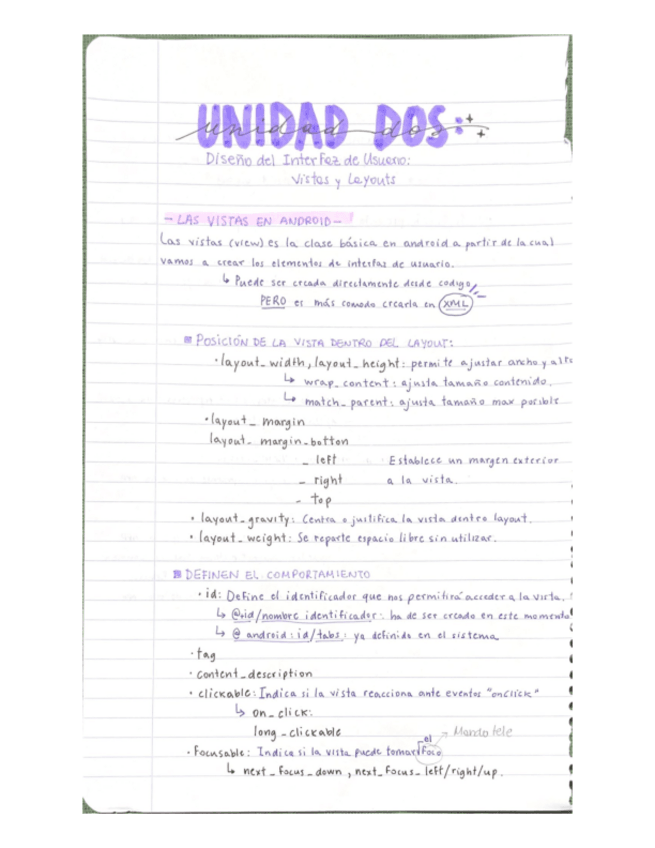 UNIDAD DOS:
unidad dos
Diseño del Interfaz de Usuario:
Vistas y Layouts
- LAS VISTAS EN ANDROID -
Las vistas (view) es la clase básica en android a partir de la cual
vamos a crear los elementos de interfas de usuario.
↳ Puede ser creada directamente desde codigo
PERO es más comodo crearla en XML
POSICIÓN DE LA VISTA DENTRO DEL LAYOUT:
· layout_width, layout_height: permite ajustar ancho y alto
↳ wrap_content: ajusta tamaño contenido.
↳ match_parent: ajusta tamaño max posible
· layout_margin
layout_margin_botton
_ left Establece un margen exterior
_ right a la vista.
- top
· layout_gravity: Centra o justifica la vista dentro layout.
· layout_weight: Se reparte espacio libre sin utilizar.
DEFINEN EL COMPORTAMIENTO
· id: Define el identificador que nos permitirá acceder a la vista.
↳ @+id/nombre identificador: ha de ser creado en este momento
↳ @ android: id/tabs: ya definido en el sistema
· tag
· content_description
· clickable: Indica si la vista reacciona ante eventos "onclick"
↳ on_click:
long_clickable
el → Mando tele
· Focusable: Indica si la vista puede tomar foco
↳ next_focus_down, next_focus_left/right/up.